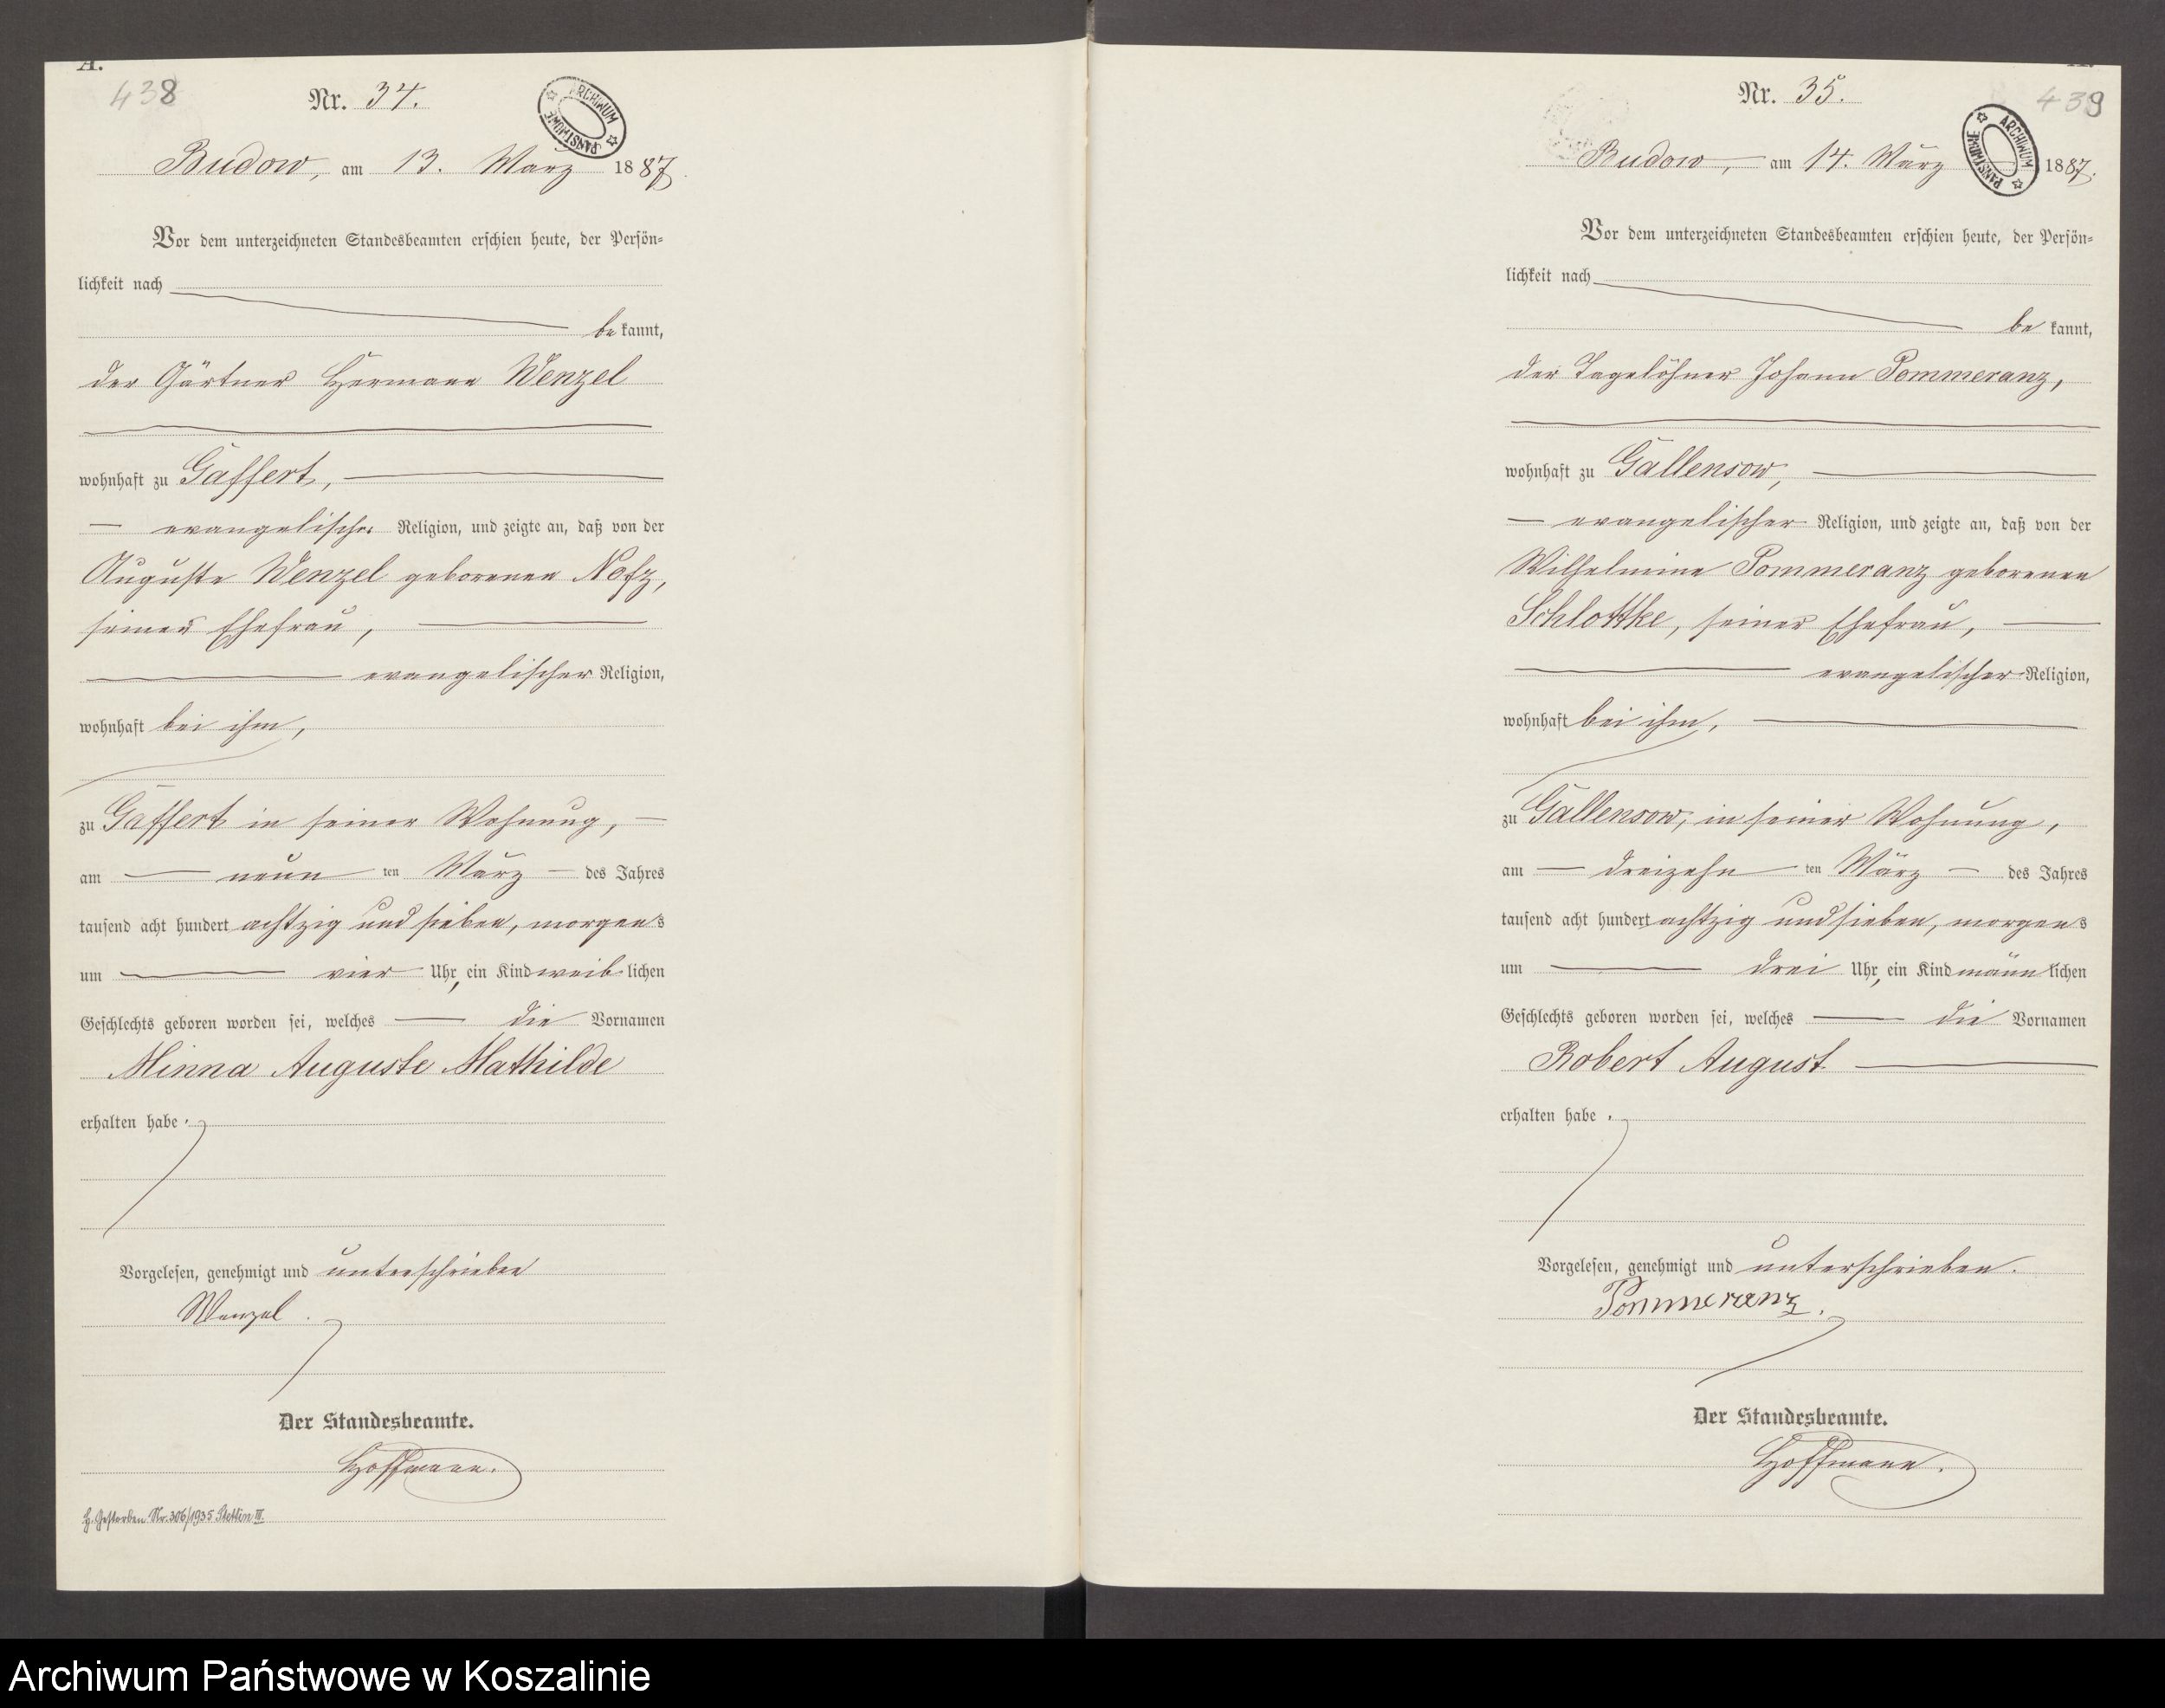 A.
438
Nr. 34.
ARCHIWUM PAŃSTWOWE
Budow, am 13. März 1887.
Vor dem unterzeichneten Standesbeamten erschien heute, der Persön-
lichkeit nach
bekannt,
der Gärtner Hermann Wenzel
wohnhaft zu Gaffert,
evangelischer Religion, und zeigte an, daß von der
Auguste Wenzel geborenen Notz,
seiner Ehefrau,
evangelischer Religion,
wohnhaft bei ihm,
zu Gaffert in seiner Wohnung,
am neunten März des Jahres
tausend acht hundert achtzig und sieben, morgens
um vier Uhr, ein Kind weiblichen
Geschlechts geboren worden sei, welches die Vornamen
Minna Auguste Mathilde
erhalten habe.
Vorgelesen, genehmigt und unterschrieben
Wenzel.
Der Standesbeamte.
Hoffmann.
Gestorben Nr. 306/1935 Stettin III.
439
Nr. 35.
ARCHIWUM PAŃSTWOWE
Budow, am 14. März 1887.
Vor dem unterzeichneten Standesbeamten erschien heute, der Persön-
lichkeit nach
bekannt,
der Tagelöhner Johann Pommeranz,
wohnhaft zu Gallensow,
evangelischer Religion, und zeigte an, daß von der
Wilhelmine Pommeranz geborenen
Schlottke, seiner Ehefrau,
evangelischer Religion,
wohnhaft bei ihm,
zu Gallensow, in seiner Wohnung,
am dreizehnten März des Jahres
tausend acht hundert achtzig und sieben, morgens
um drei Uhr, ein Kind männlichen
Geschlechts geboren worden sei, welches die Vornamen
Robert August
erhalten habe.
Vorgelesen, genehmigt und unterschrieben.
Pommeranz.
Der Standesbeamte.
Hoffmann.
Archiwum Państwowe w Koszalinie